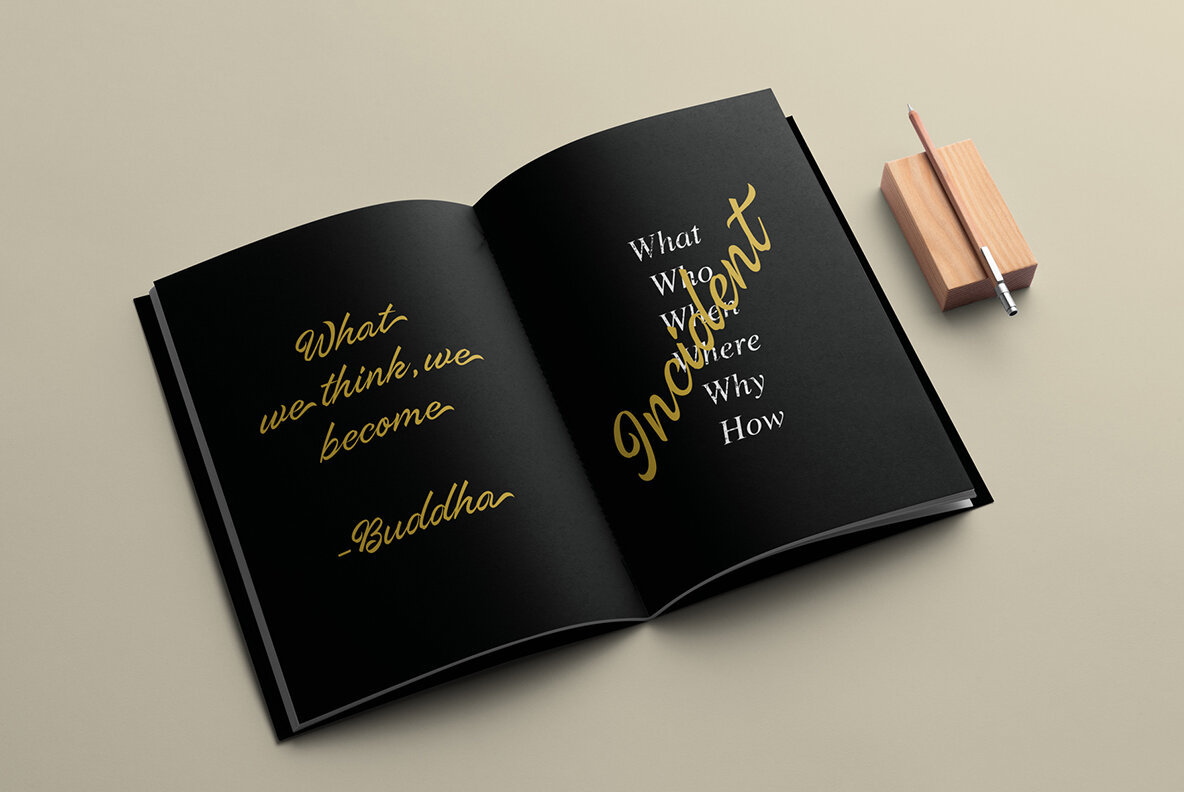 What
we think, we
become
-Buddha
What
Who
When
Where
Why
How
Incident